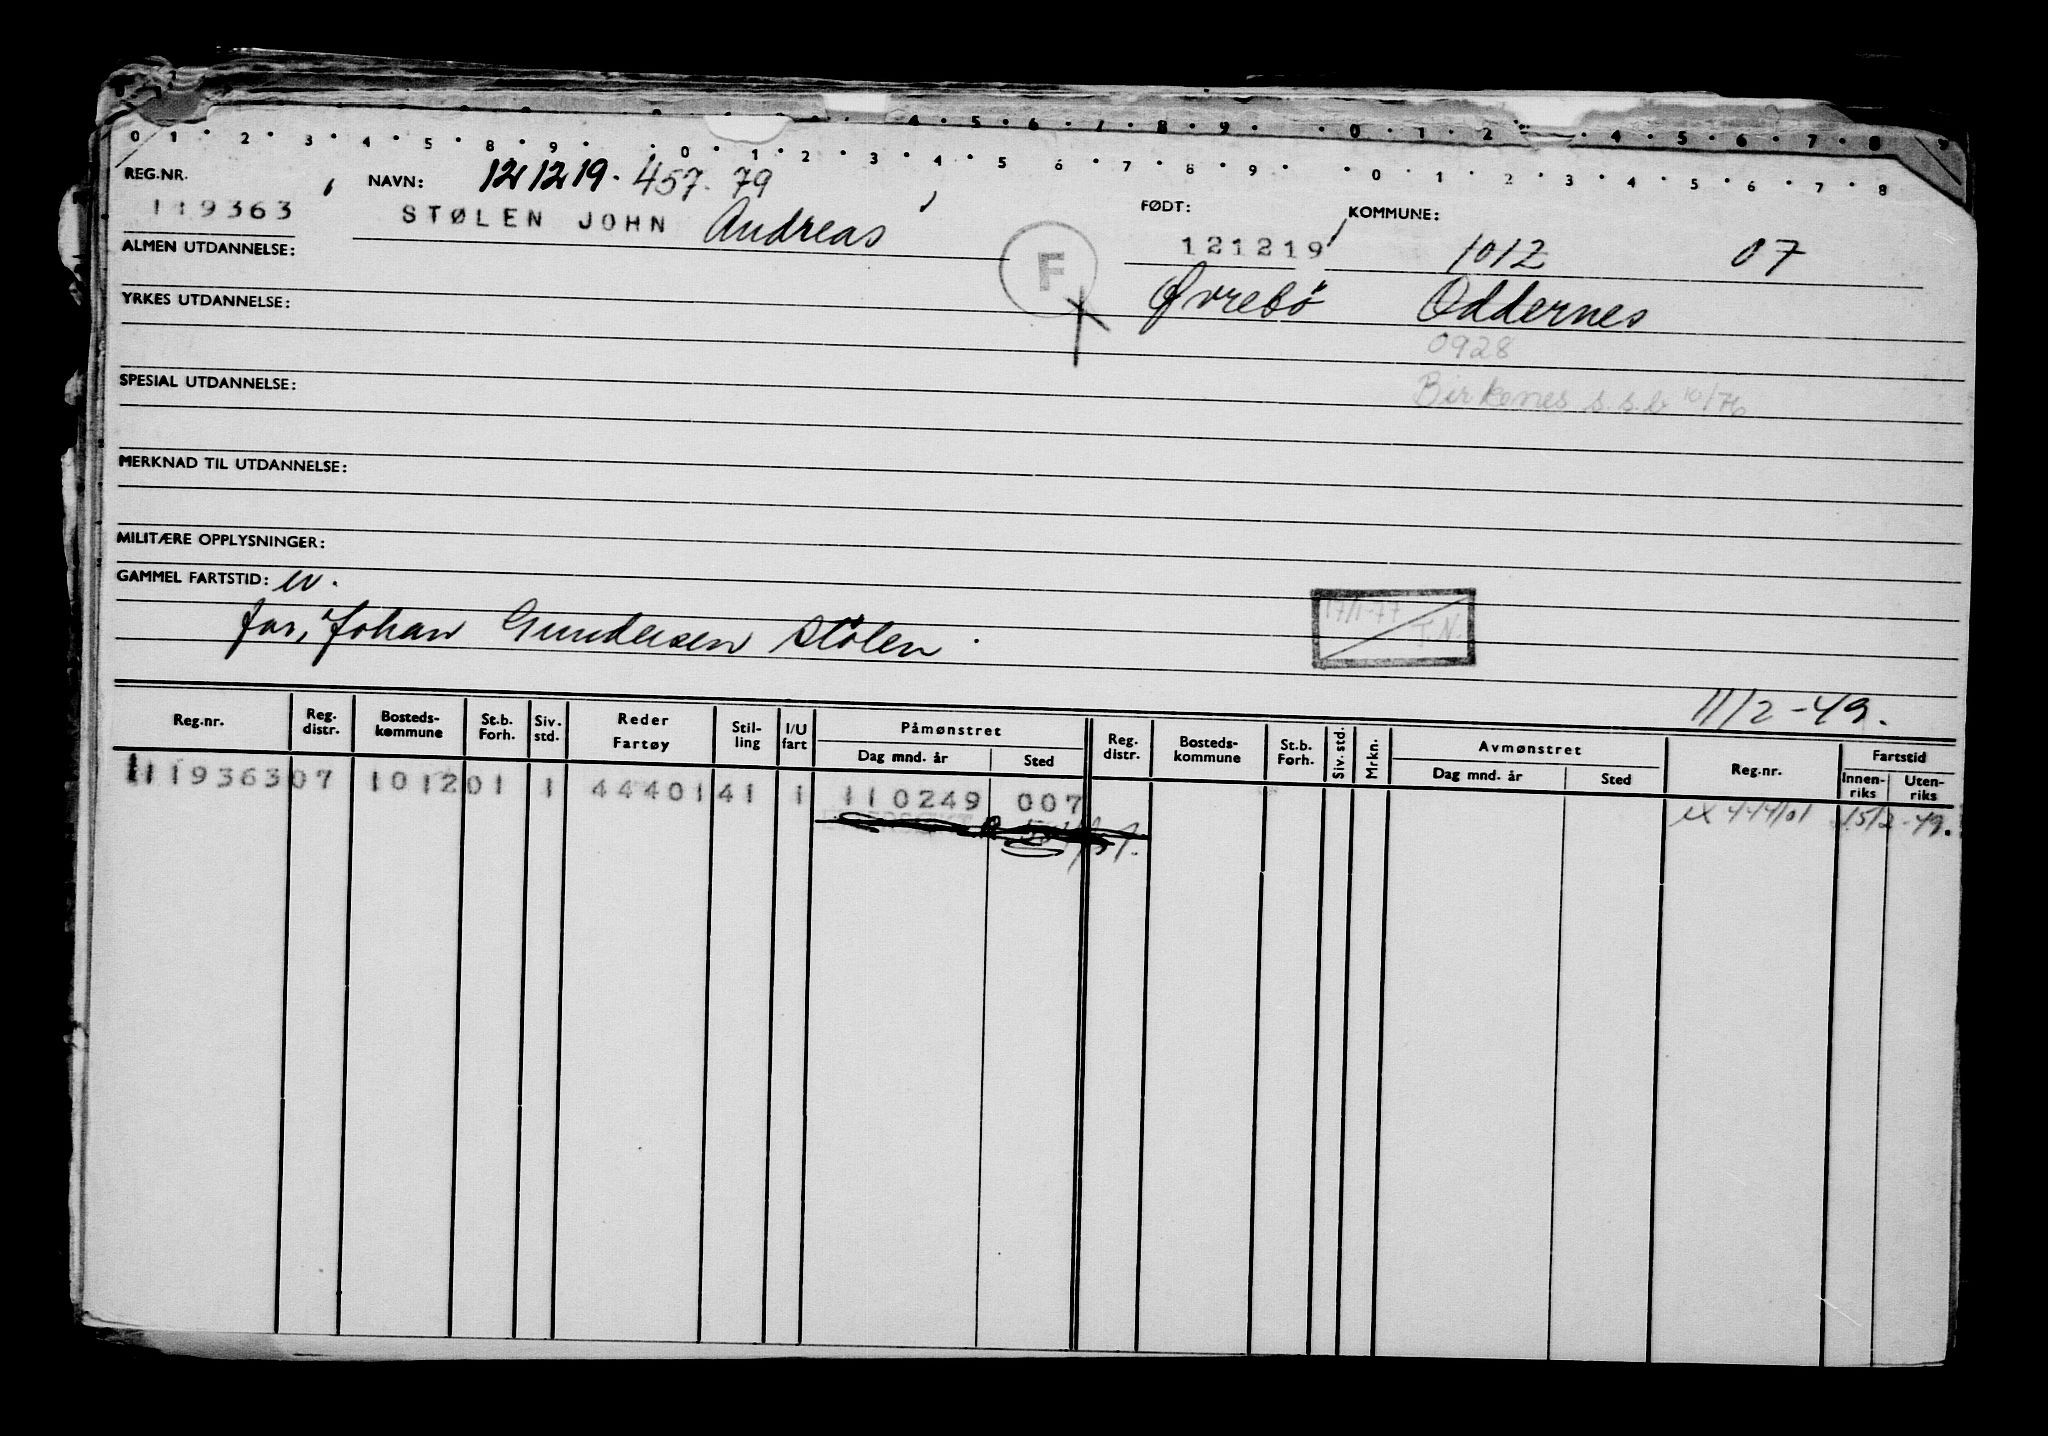 0 1 · 2 · 3 · 4 · 5 · 8 · 9 · · 0 · 1 · 2 · 3 · 4 · 5 6 · 7 · 8 · 9 · · 0 · 1 · 2 · 3 · 4 · 5 · 6 · 7 · 8
4 · 5 · 6 · 7 · 8 · 9 · · 0 · 1 · 2 · 4 · 5 · 6 · 7 · 8 9
REG.NR. NAVN: 121219. 457. 79 FØDT: KOMMUNE:
119363 STØLEN JOHN Andreas 121219 1012 07
ALMEN UTDANNELSE: F
YRKES UTDANNELSE: Øvrebö Oddernes
0928
SPESIAL UTDANNELSE: Birkenes s.s.b 10/76
MERKNAD TIL UTDANNELSE:
MILITÆRE OPPLYSNINGER:
GAMMEL FARTSTID:
far, Johan Gundersen Stölen. 17/1-77 T.N.
11/2-49.
Reg.nr. Reg. distr. Bosteds- kommune St.b. Forh. Siv. std. Reder Fartøy Stil- ling I/U fart Påmønstret Dag mnd. år Sted Reg. distr. Bosteds- kommune St.b. Forh. Siv. std. Mrkn. Avmønstret Dag mnd. år Sted Reg.nr. Fartstid Innen- riks Uten- riks
119363 07 1012 01 1 44401 41 1 110249 007 444/01 15/2-49.